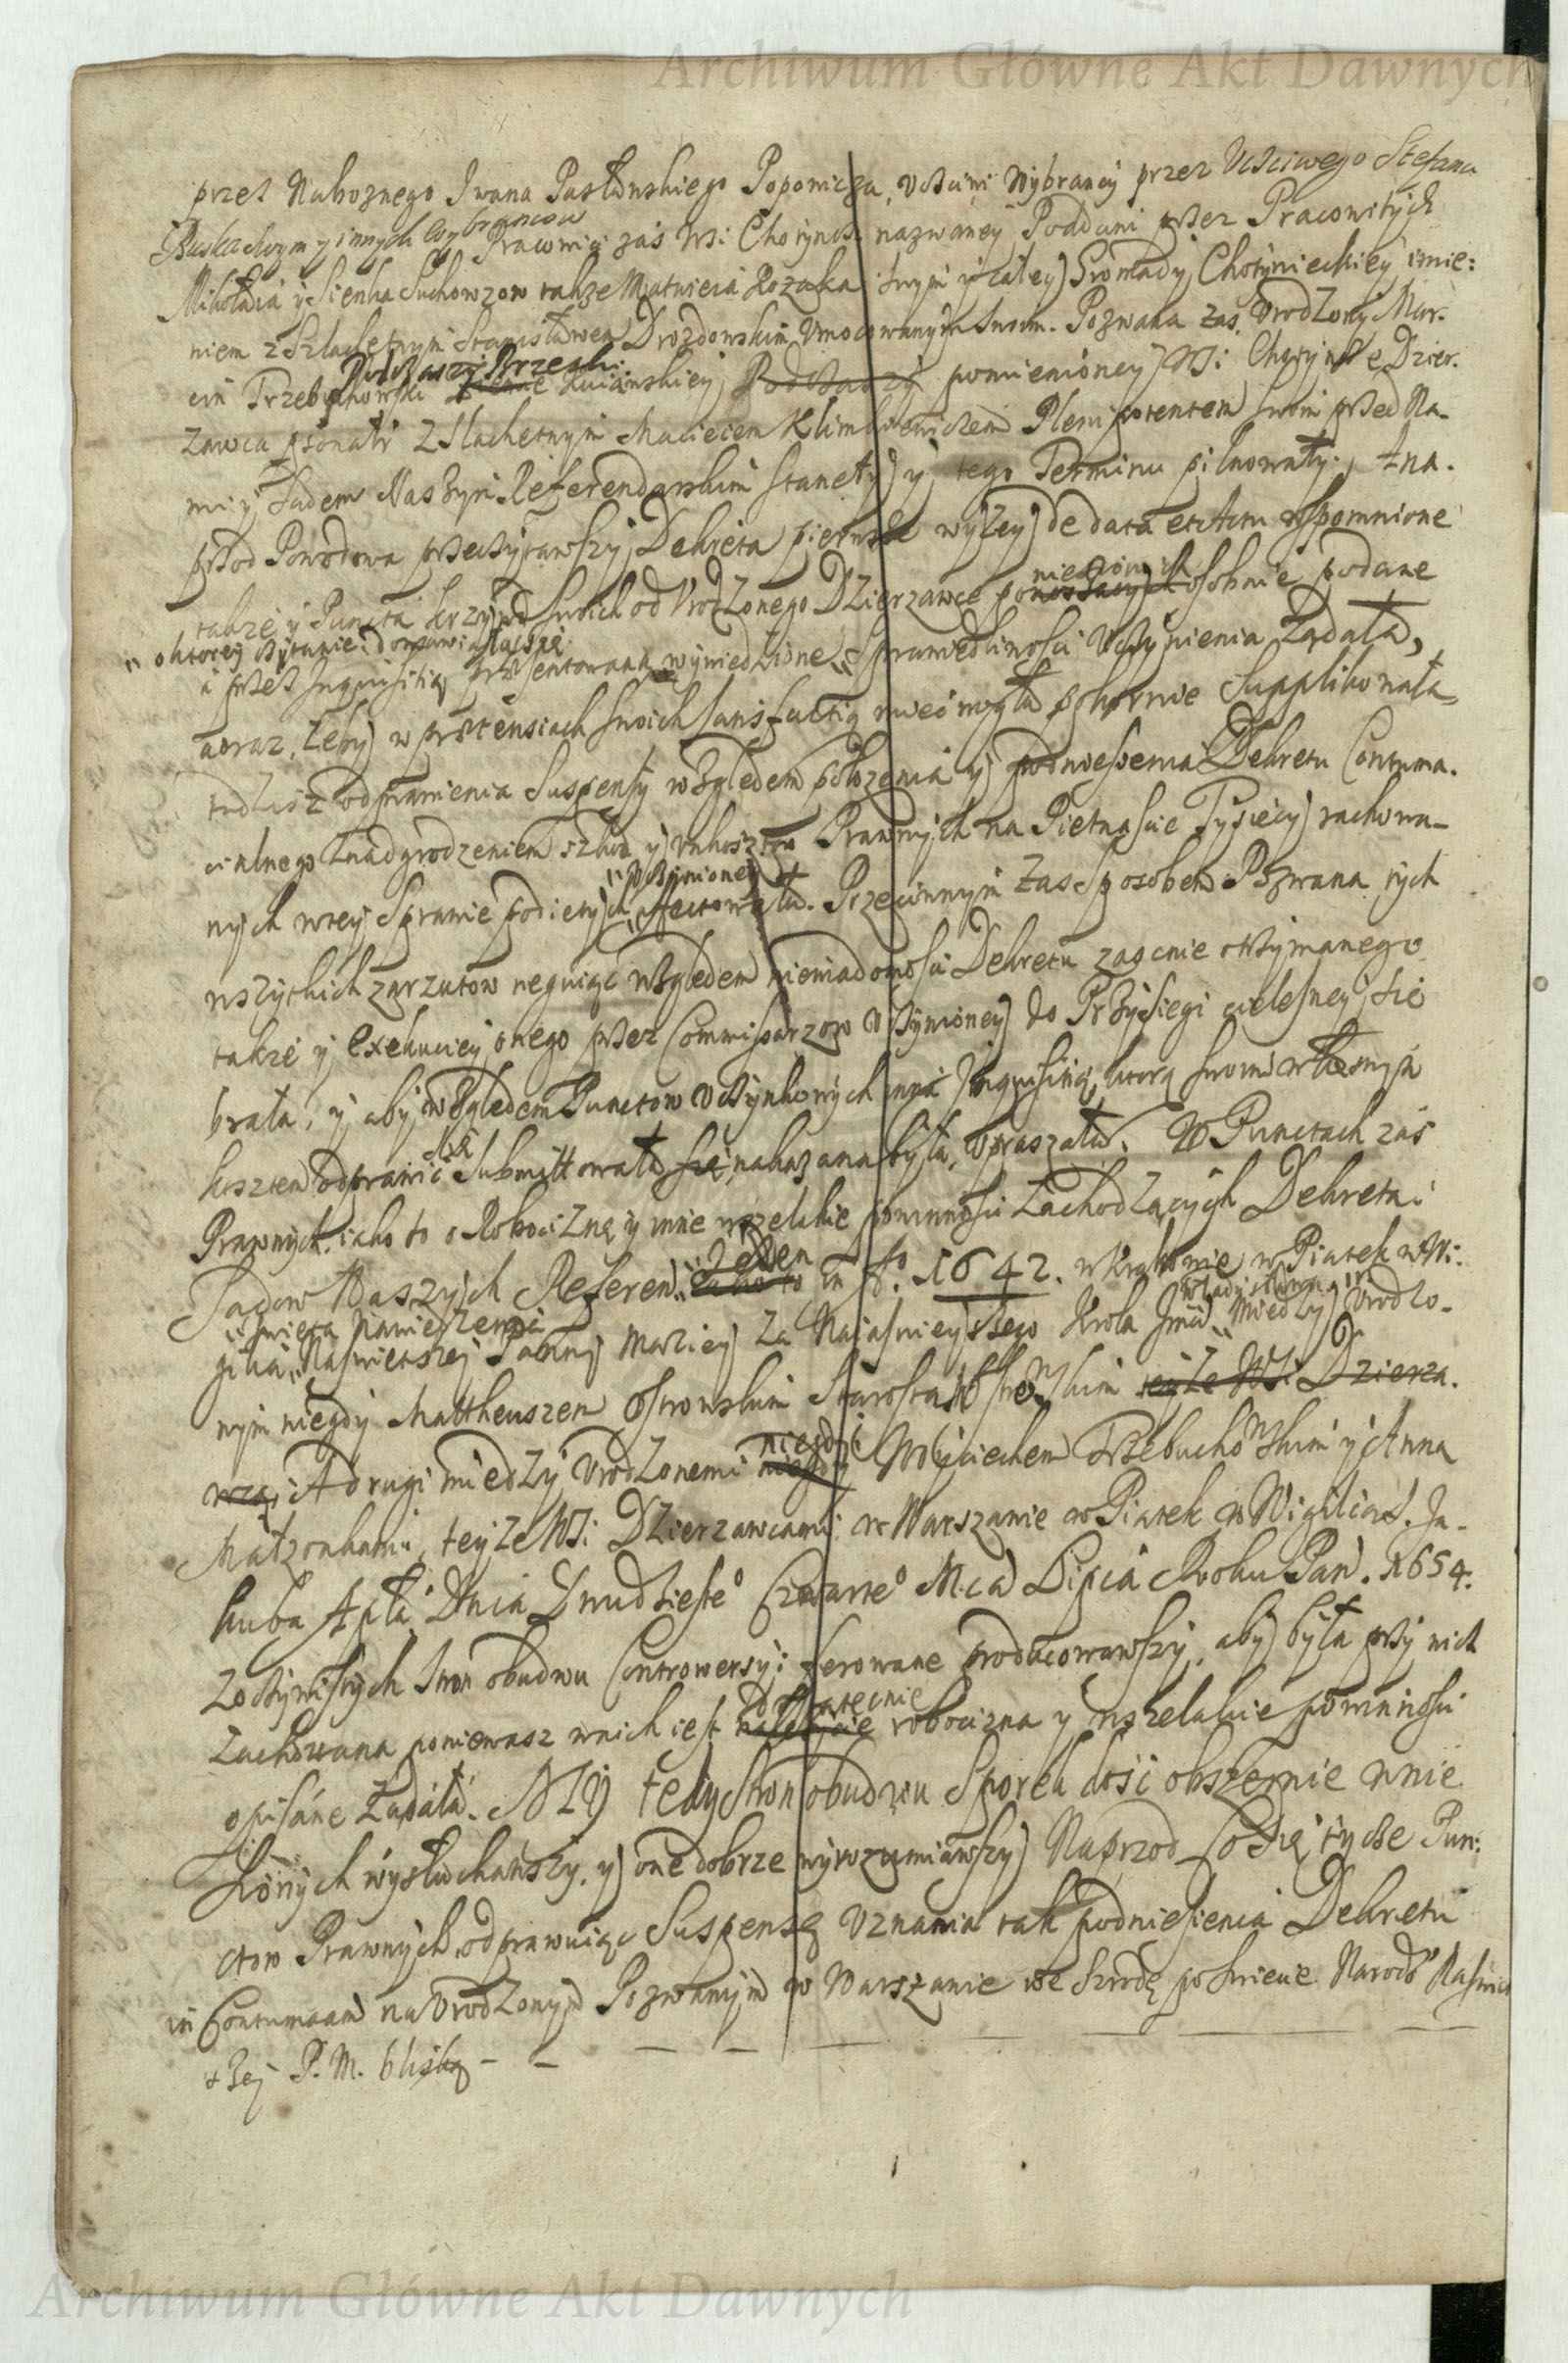 Archiwum Główne Akt Dawnych
przez Nabożnego Iwana Pasławskiego Popowicza, Uczciwi Wybrancy przez Uczciwego Stefana
y innych Wybrancow Pracowici zaś Wsi Chotyńca nazwaney Poddani przez Pracowitych
Mikołaia y Sienka Suchowzow także Matwieia Kozaka y całey Gromady Chotynieckiey imie:
niem z Szlachetnym Stanisławem Drozdowskim Umocowanym swoim. Pozwana zaś Urodzony Mar-
cin Trzebuchowski Podczaszy Brzeski Kuiawskiey Podczaszy pomienioney Wsi Chotyńce Dzier-
zawca psonalr z Slachetnym Macieiem Klimkiewiczem Plenipotentem swoim przed Na-
mi y Sądem Naszym Referendarskim stanęły y tego Terminu pilnowały. z na-
przod Powodowa przeczytawszy Dekreta pierwsze wyżey de data et Actu wspomnione
także y Puncta krzywd swoich od Urodzonego Dzierzawce poniesionych osobnie podane
o ktorey czytanie domawiała się
a przez Inquisitią prezentowaną wywiedzione Sprawiedliwości Uczynienia Ządała,
aoraz, żeby w praetensiach swoich satisfactią mieć mogła pokornie Supplikowała
tudzież odprawienia Suspensy względem położenia y podniesienia Dekretu Contuma-
cialnego z nadgrodzeniem szkod y unkosztow Prawnych na Pietnaście Tysięcy rachowa-
nych w tey Sprawie podiętych, uczynioney Affectowała. Przeciwnym zas Sposobem Pozwana tych
wszytkich zarzutow neguiąc względem niewiadomości Dekretu zaocznie otrzymanego
także y exekuciey onego przez Commissarzow Uczynioney do Przysięgi cielesney się
brała, y aby względem Punctow Uczynkowych Inquisitią, ktorą swoim własnym
kosztem odprawić się Submittowała się, nakazana była, upraszała. W Punctach zaś
Prawnych, iako to o Robociznę y inne wszelakie powinności zachodzących Dekreta
Sądow Naszych Referen. Jeden iako to in Ao. 1642. w Krakowie w Piątek w Wi-
gilią Swięta Nawiedzenia Naswiętszey Panny Mariey za Naiasnieyszego Krola Jmci Władysława Między Urodzo-
nym niegdy Mattheuszem Ostrowskim Starostą teyże Wsi Dzierza-
wcą; A drugi między Urodzonemi niegdy Woyciechem Trzebuchowskim y Anną
Małzonkami, teyże Wsi Dzierzawcami w Warszawie w Piątek w Wigilią S. Ja-
kuba Apła Dnia Dwudzieste° Czwarte° Mca Lipca Roku Pań. 1654.
z oczywistych stron obudwu Controwersyi ferowane producowawszy, aby była przy nich
zachowana poniewasz w nich iest dostatecznie robocizna y wszelakie powinności
opisane Ządała. MY tedy Stron obudwu Sporek dość obszernie wnie-
sionych wysłuchawszy, y one dobrze wyrozumiawszy Naprzod co się tycze Pun-
ctow Prawnych, odprawuiąc Suspensę Uznania tak podniesienia Dekretu
in Contumaciam na Urodzonym Pozwanym w Warszawie we Szrodę po Swięcie Narodz° Naświę-
tszey P. M. blisko
Archiwum Główne Akt Dawnych